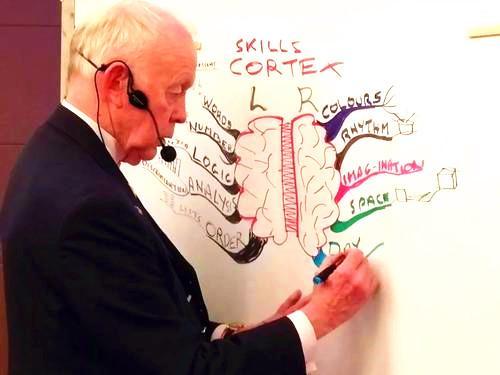 SKILLS
CORTEX
L R
WORDS
NUMBER
LOGIC
ANALYSIS
LISTS
ORDER
COLOURS
RHYTHM
IMAG-INATION
SPACE
DAY